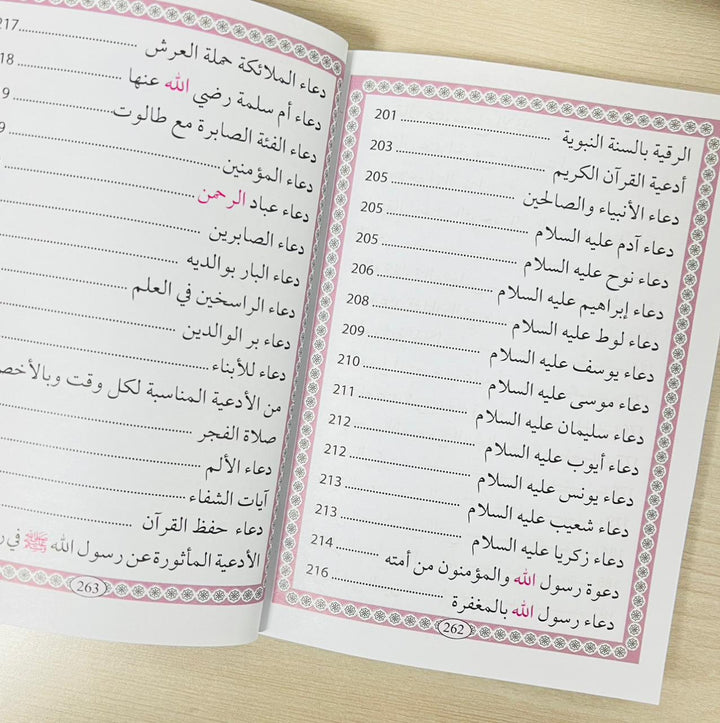 الرقية بالسنة النبوية 201
أدعية القرآن الكريم 203
دعاء الأنبياء والصالحين 205
دعاء آدم عليه السلام 205
دعاء نوح عليه السلام 205
دعاء إبراهيم عليه السلام 206
دعاء لوط عليه السلام 208
دعاء يوسف عليه السلام 209
دعاء موسى عليه السلام 210
دعاء سليمان عليه السلام 211
دعاء أيوب عليه السلام 212
دعاء يونس عليه السلام 212
دعاء شعيب عليه السلام 213
دعاء زكريا عليه السلام 213
دعوة رسول الله والمؤمنون من أمته 214
دعاء رسول الله بالمغفرة 216
262
دعاء الملائكة حملة العرش 217
دعاء أم سلمة رضي الله عنها
دعاء الفئة الصابرة مع طالوت
دعاء المؤمنين
دعاء عباد الرحمن
دعاء الصابرين
دعاء البار بوالديه
دعاء الراسخين في العلم
دعاء بر الوالدين
دعاء للأبناء
من الأدعية المناسبة لكل وقت
صلاة الفجر
دعاء الألم
آيات الشفاء
دعاء حفظ القرآن
الأدعية المأثورة عن رسول الله ﷺ في
263